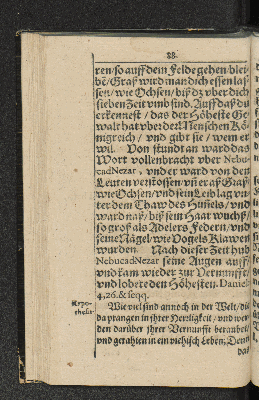 88.
ren / so auff dem Felde gehen / blei-
bē / Graß wird man dich essen las-
sen / wie Ochsen / biß dz vber dich
sieben Zeit vmb sind. Auff daß du
erkennest / das der Höheste Ge-
walt hat vber den Menschen Kö-
nigreich / vnd gibt sie / wem er
wil. Von stund an ward das
Wort vollenbracht vber Nebu-
cadNezar, vnd er ward von den
Leuten verstossen / vñ er aß Graß /
wie Ochsen / vnd sein Leib lag vn-
ter dem Thaw des Him̃els / vnd
ward naß / biß sein Haar wuchß /
so groß als Adelers Federn / vnd
seine Nägel / wie Vogels Klawen
wurden. Nach dieser Zeit hub
NebucadNezar seine Augen auff /
vnd kam wieder zur Vernunfft /
vnd lobete den Höhesten. Daniel:
4, 26. & seqq.
Hypo-
thesis
Wie viel sind annoch in der Welt / die
da prangen in jhrer Herrligkeit / vnd wer-
den darüber jhrer Vernunfft beraubet /
vnd gerahten in ein viehisch Leben; Denn
das